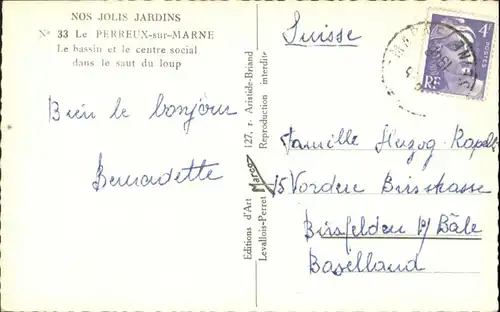 NOS JOLIS JARDINS
N° 33 Le PERREUX-sur-MARNE
Le bassin et le centre social
dans le saut du loup
Bien le bonjour
Bernadette
Editions d'Art Marco 127, r. Aristide-Briand
Levallois-Perret Reproduction interdite
Suisse
4F
POSTES
RF
SEINE
Famille Herzog-Rapelli
15 Vordere Birsstrasse
Birsfelden b/ Bâle
Baselland